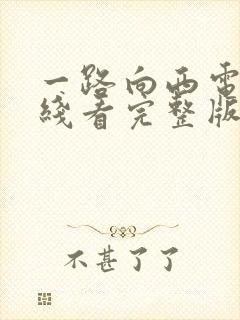 一路向西电
线看完整版
不甚了了